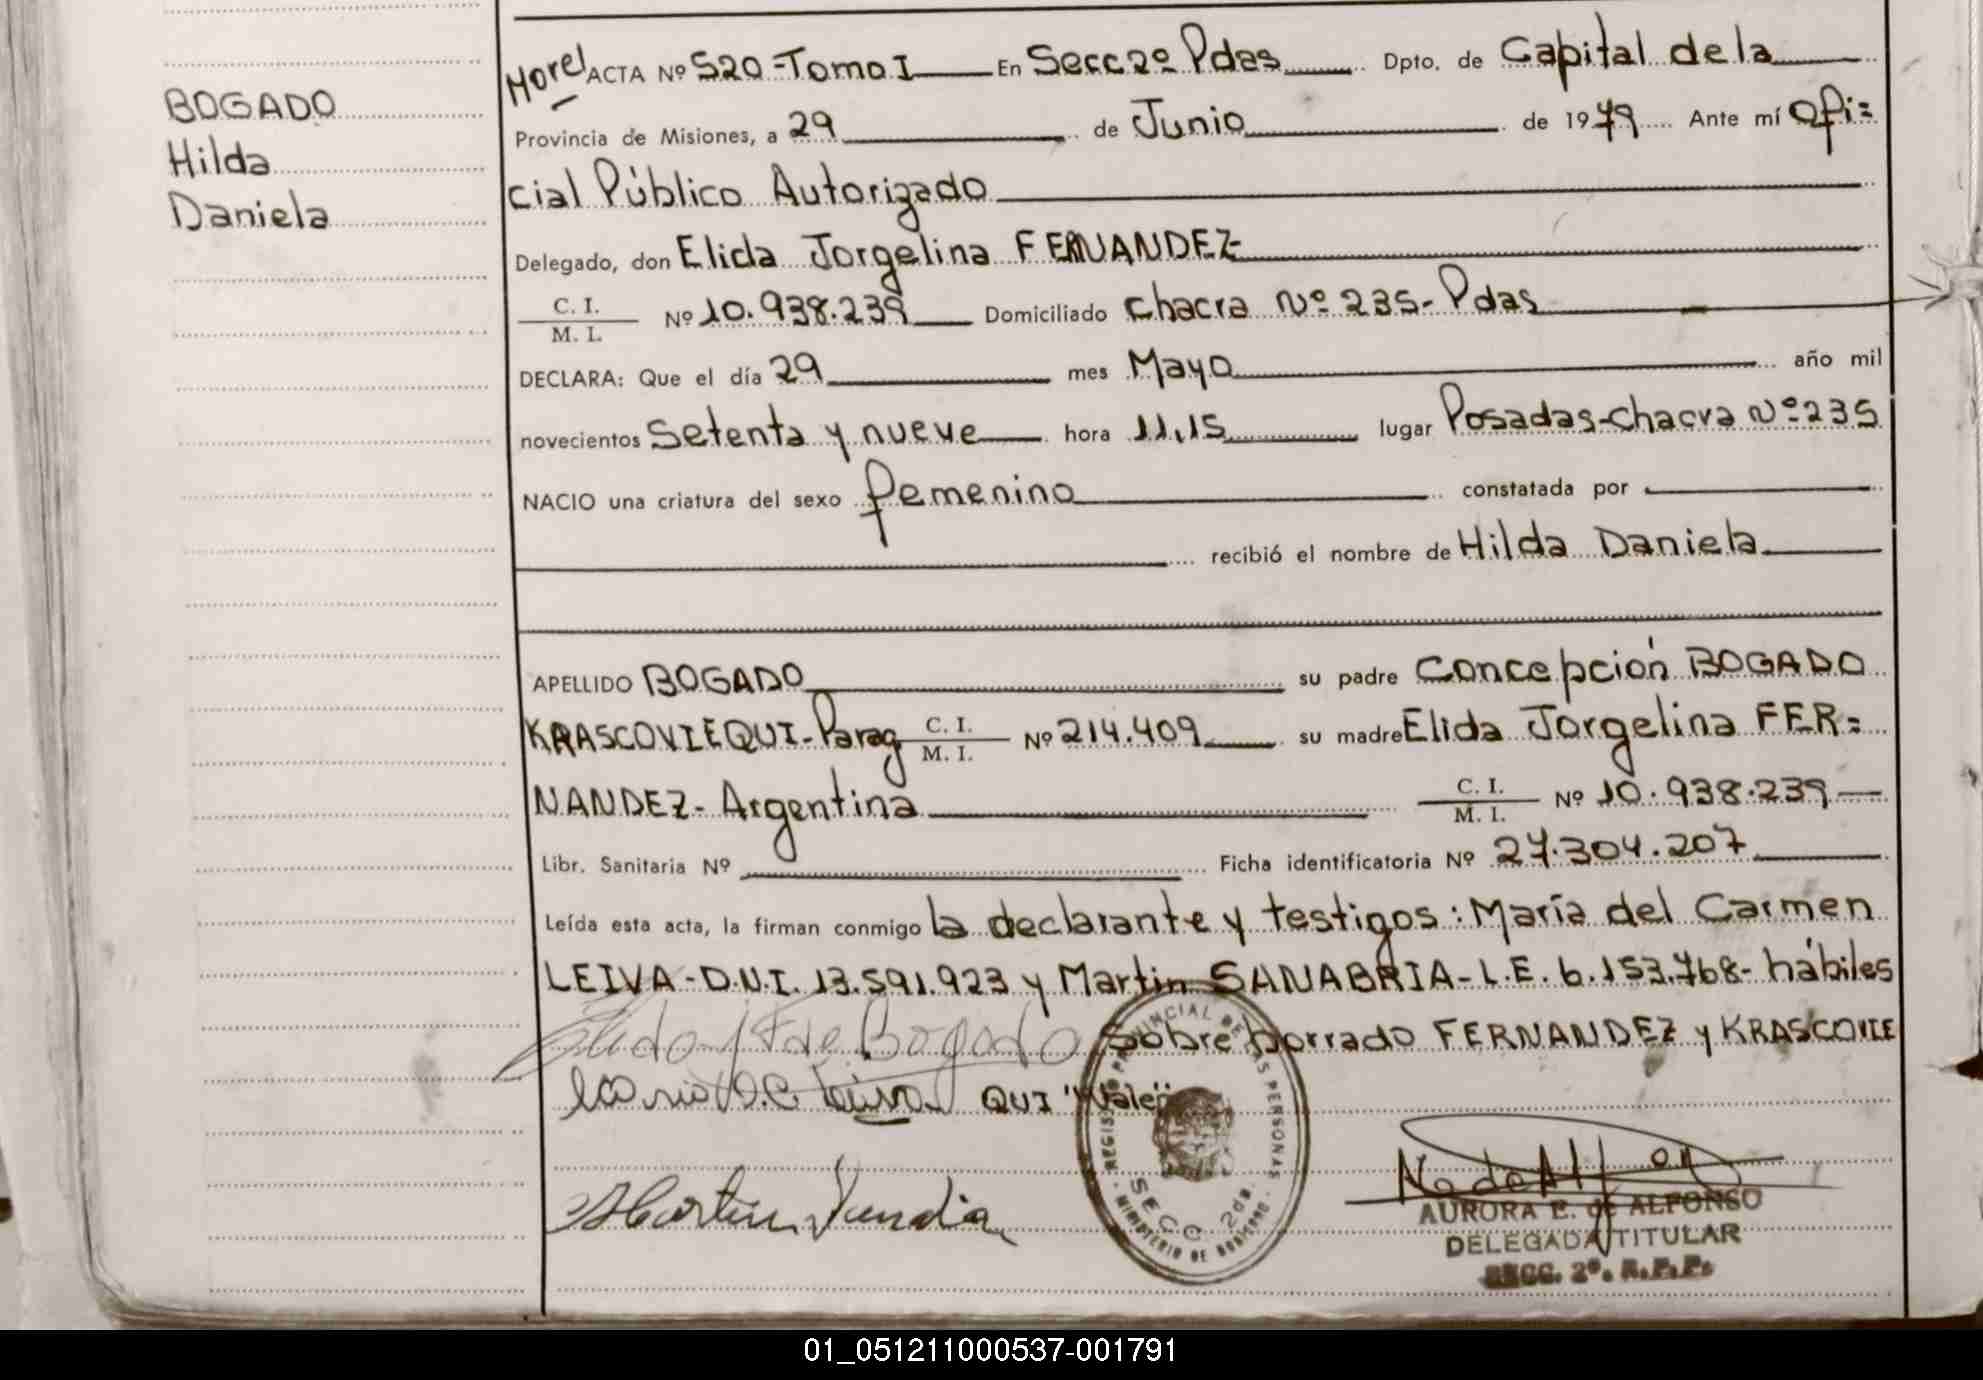 BOGADO
Hilda
Daniela
Morel ACTA Nº 520-Tomo I En Secc 2º Pdas Dpto. de Capital de la
Provincia de Misiones, a 29 de Junio de 1979 Ante mí Ofi=
cial Público Autorizado
Delegado, don Elida Jorgelina FERNANDEZ-
C. I.
M. I. Nº 10.938.239 Domiciliado Chacra Nº 235- Pdas
DECLARA: Que el día 29 mes Mayo año mil
novecientos Setenta y nueve hora 11,15 lugar Posadas-Chacra Nº 235
NACIO una criatura del sexo femenino constatada por
recibió el nombre de Hilda Daniela
APELLIDO BOGADO su padre Concepción BOGADO
KRASCOVIEQUI-Parag C. I. M. I. Nº 214.409 su madre Elida Jorgelina FER=
NANDEZ- Argentina C. I. M. I. Nº 10.938.239
Libr. Sanitaria Nº Ficha identificatoria Nº 27.304.207
Leída esta acta, la firman conmigo la declarante y testigos: María del Carmen
LEIVA-D.N.I. 13.591.923 y Martin SANABRIA-L.E. 6.153.768- hábiles
Elida J F de Bogado Sobre borrado FERNANDEZ y KRASCOVIE
QUI "Vale"
REGISTRO PROVINCIAL DE LAS PERSONAS
SECC 2da.
MINISTERIO DE GOBIERNO
AURORA E. de ALFONSO
DELEGADA TITULAR
SECC. 2º. R.P.P.
01_051211000537-001791